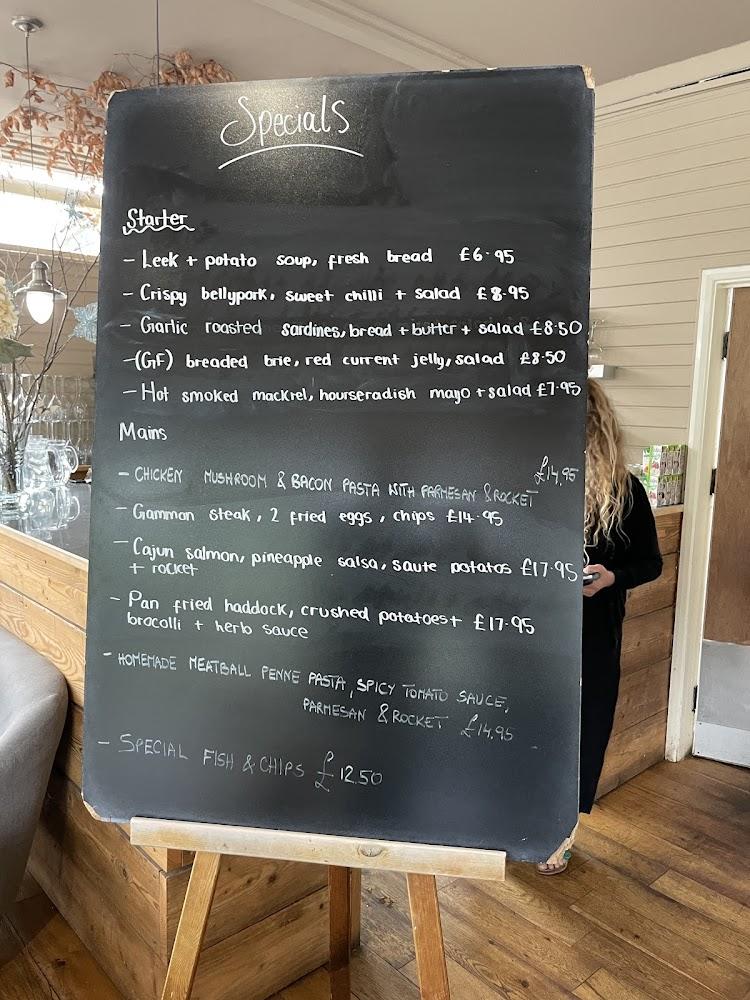 Specials
Starter
- Leek + potato soup, fresh bread £6.95
- Crispy bellypork, sweet chilli + salad £8.95
- Garlic roasted sardines, bread + butter + salad £8.50
-(GF) breaded brie, red current jelly, salad £8.50
- Hot smoked mackrel, hourseradish mayo + salad £7.95
Mains
- CHICKEN MUSHROOM & BACON PASTA WITH PARMESAN & ROCKET £14.95
- Gammon steak, 2 fried eggs, chips £14.95
- Cajun salmon, pineapple salsa, saute potatos £17.95
+ rocket
- Pan fried haddock, crushed potatoes + £17.95
brocolli + herb sauce
- HOMEMADE MEATBALL PENNE PASTA, SPICY TOMATO SAUCE,
PARMESAN & ROCKET £14.95
- SPECIAL FISH & CHIPS £12.50